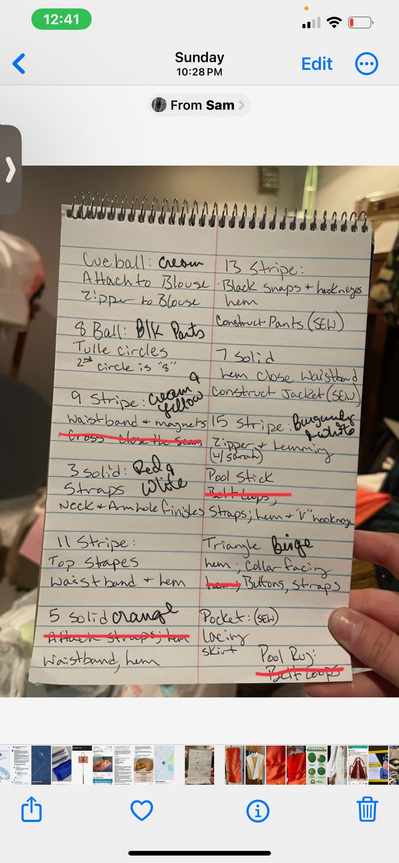 12:41
Sunday
10:28 PM
Edit
From Sam
Cue ball: cream
Attach to Blouse
Zipper to Blouse
8 Ball: Blk Pants
Tulle circles
2nd circle is "8"
9 Stripe: cream & yellow
Waistband + magnets
Cross Close the Seam
3 solid: Red & White
Straps
Neck + Armhole finishes
11 Stripe:
Top Stapes
Waistband + hem
5 solid orange
Attach straps; hem
Waistband, hem
13 Stripe:
Black snaps + hook n eyes
hem
Construct Pants (SEW)
7 solid
hem Close Waistband
Construct Jacket (SEW)
15 Stripe: Burgundy & white
Zipper + Hemming
w/ Sarah
Pool Stick
Belt loops,
Straps; hem + "V" hook n eye
Triangle Beige
hem, Collar facing
hem, Buttons, straps
Pocket: (SEW)
lacing
skirt
Pool Rug:
Belt Loops